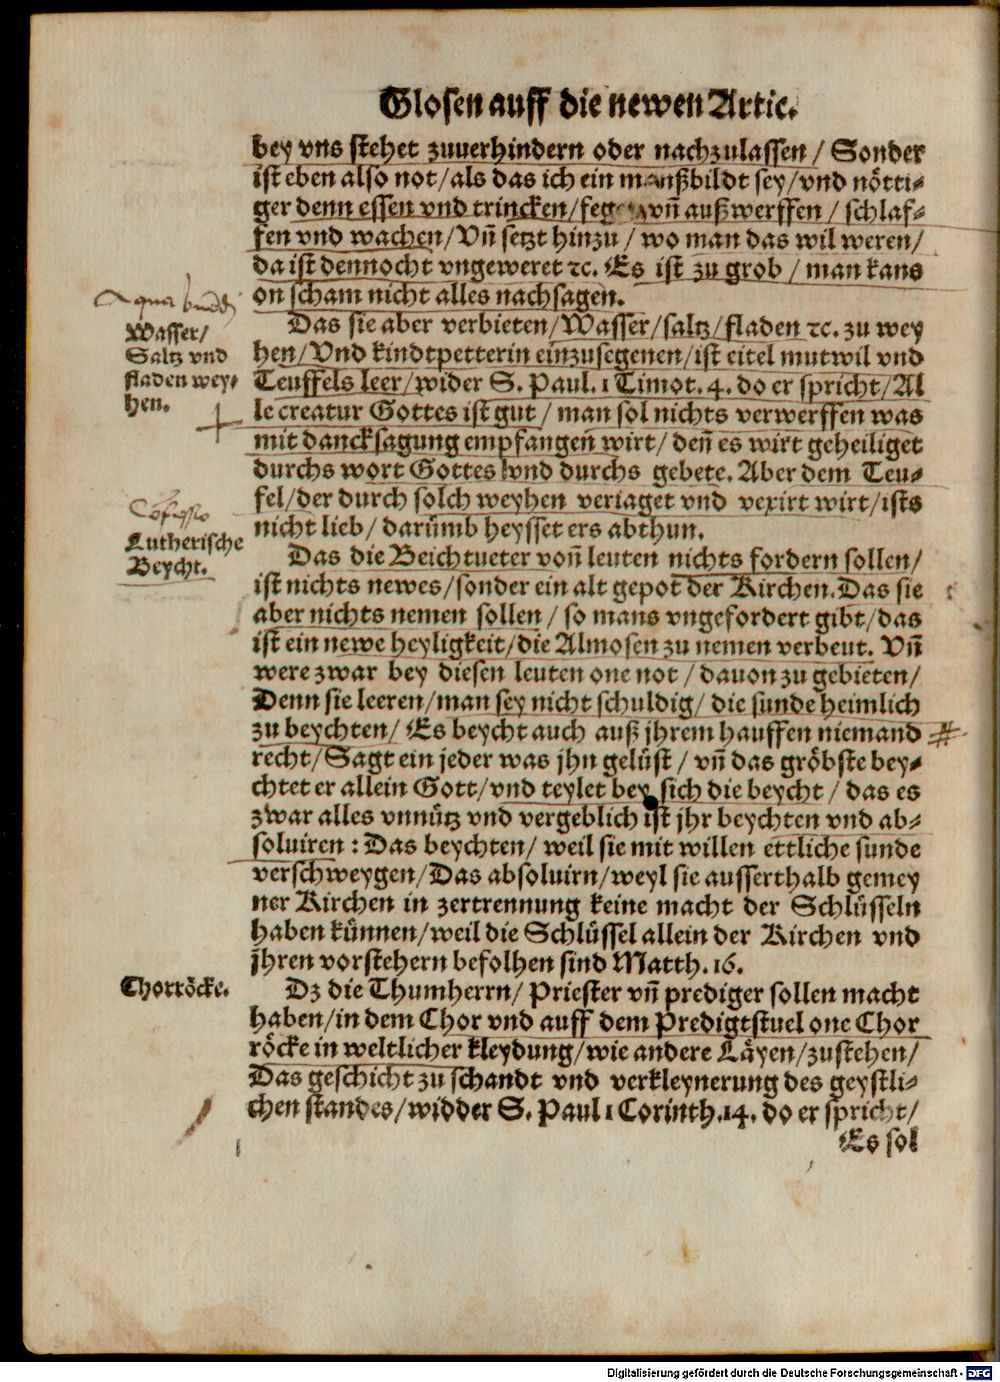 Glosen auff die newen Artic.
bey vns stehet zuuerhindern oder nachzulassen / Sonder
ist eben also not / als das ich ein manßbildt sey / vnd nötti-
ger denn essen vnd trincken / fegen vñ außwerffen / schlaf-
fen vnd wachen / Vñ setzt hinzu / wo man das wil weren /
da ist dennocht vngeweret ꝛc. Es ist zu grob / man kans
on scham nicht alles nachsagen.
Aqua
Wasser /
Saltz vnd
fladen wey-
hen.
Das sie aber verbieten / Wasser / saltz / fladen ꝛc. zu wey
hen / Vnd kindtpetterin einzusegenen / ist eitel mutwil vnd
Teuffels leer / wider S. Paul. 1 Timot. 4. do er spricht / Al
le creatur Gottes ist gut / man sol nichts verwerffen was
mit dancksagung empfangeñ wirt / deñ es wirt geheiliget
durchs wort Gottes vnd durchs gebete. Aber dem Teu-
fel / der durch solch weyhen veriaget vnd vexirt wirt / ists
nicht lieb / darümb heysset ers abthun.
Lutherische
Beycht.
Das die Beichtueter voñ leuten nichts fordern sollen /
ist nichts newes / sonder ein alt gepot der Kirchen. Das sie
aber nichts nemen sollen / so mans vngefordert gibt / das
ist ein newe heyligkeit / die Almosen zu nemen verbeut. Vñ
were zwar bey diesen leuten one not / dauon zu gebieten /
Denn sie leeren / man sey nicht schuldig / die sunde heimlich
zu beychten / Es beycht auch auß jhrem hauffen niemand
recht / Sagt ein jeder was jhn gelüst / vñ das gröbste bey-
chtet er allein Gott / vnd teylet bey sich die beycht / das es
zwar alles vnnütz vnd vergeblich ist jhr beychten vnd ab-
soluiren : Das beychten / weil sie mit willen ettliche sunde
verschweygen / Das absoluirn / weyl sie ausserthalb gemey
ner Kirchen in zertrennung keine macht der Schlüsseln
haben künnen / weil die Schlüssel allein der Kirchen vnd
jhren vorstehern befolhen sind Matth. 16.
Chorröcke.
Dz die Thumherrn / Priester vñ prediger sollen macht
haben / in dem Chor vnd auff dem Predigtstuel one Chor
röcke in weltlicher kleydung / wie andere Läyen / zustehen /
Das geschicht zu schandt vnd verkleynerung des geystli-
chen standes / widder S. Paul 1 Corinth. 14. do er spricht /
Es sol
Digitalisierung gefördert durch die Deutsche Forschungsgemeinschaft - DFG